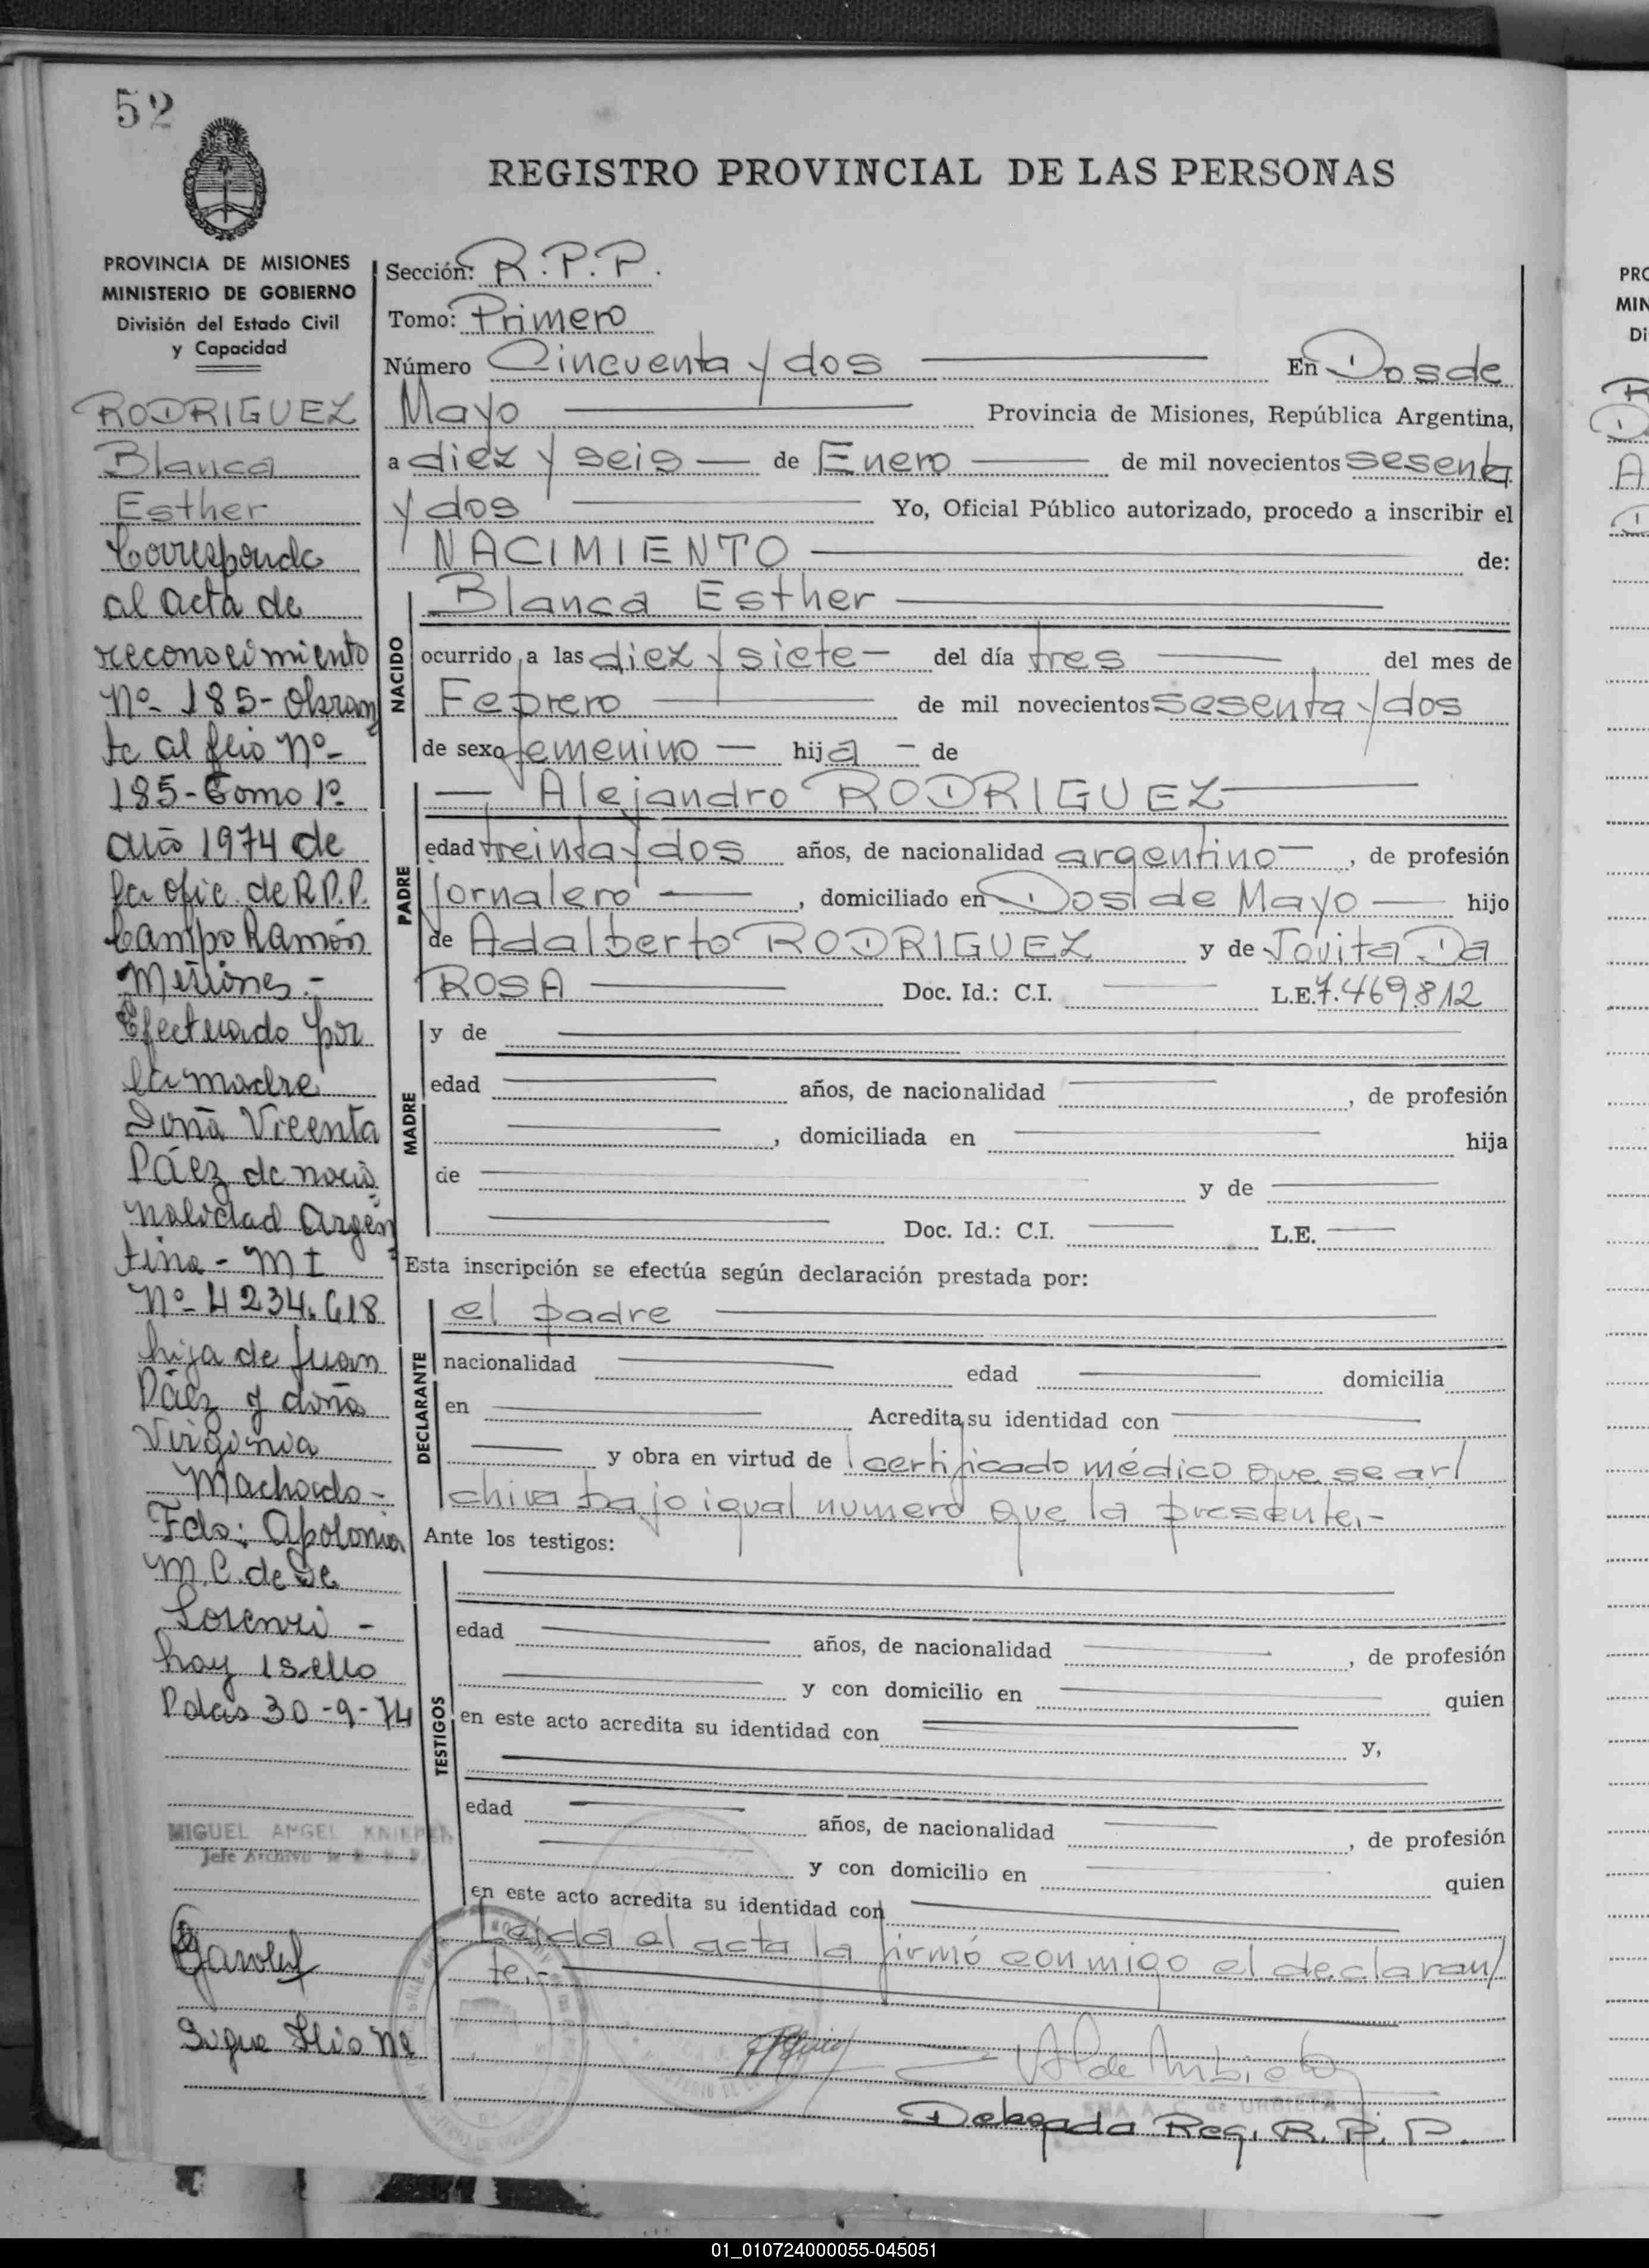 52
REGISTRO PROVINCIAL DE LAS PERSONAS
PROVINCIA DE MISIONES
MINISTERIO DE GOBIERNO
División del Estado Civil
y Capacidad
RODRIGUEZ
Blanca
Esther
Corresponde
al acta de
reconocimiento
Nº 185- obran
te al flio Nº-
185-Tomo 1º
año 1974 de
la ofic. de R.P.P.
Campo Ramón
Misiones.-
Efectuado por
la madre
Doña Vicenta
Páez de nacio
nalidad Argen
tina - M I
Nº 4234.618
hija de Juan
Páez y doña
Virginia
Machado-
Fdo: Apolonia
M.C. de De
Lorenzi -
hay 1 sello
Pdas 30-9-74
MIGUEL ANGEL KNIEPER
Jefe Archivo
Sigue flio Nº
Sección: R.P.P.
Tomo: Primero
Número Cincuenta y dos En Dos de
Mayo Provincia de Misiones, República Argentina,
a diez y seis de Enero de mil novecientos sesenta
y dos Yo, Oficial Público autorizado, procedo a inscribir el
NACIMIENTO de:
NACIDO
Blanca Esther
ocurrido a las diez y siete del día tres del mes de
Febrero de mil novecientos sesenta y dos
de sexo femenino hija de
PADRE
Alejandro RODRIGUEZ
edad treinta y dos años, de nacionalidad argentino, de profesión
Jornalero, domiciliado en Dos de Mayo hijo
de Adalberto RODRIGUEZ y de Jovita Da
ROSA Doc. Id.: C.I. L.E. 7.469.812
MADRE
y de
edad años, de nacionalidad , de profesión
, domiciliada en hija
de y de
Doc. Id.: C.I. L.E.
Esta inscripción se efectúa según declaración prestada por:
DECLARANTE
el padre
nacionalidad edad domicilia
en Acredita su identidad con
y obra en virtud de certificado médico que se ar/
chiva bajo igual numero que la presente.-
Ante los testigos:
TESTIGOS
edad años, de nacionalidad , de profesión
y con domicilio en quien
en este acto acredita su identidad con y,
edad años, de nacionalidad , de profesión
y con domicilio en quien
en este acto acredita su identidad con
Leída el acta la firmó conmigo el declaran/
te.-
A. C. de URBIETA
Delegada Reg. R. P. P.
01_010724000055-045051